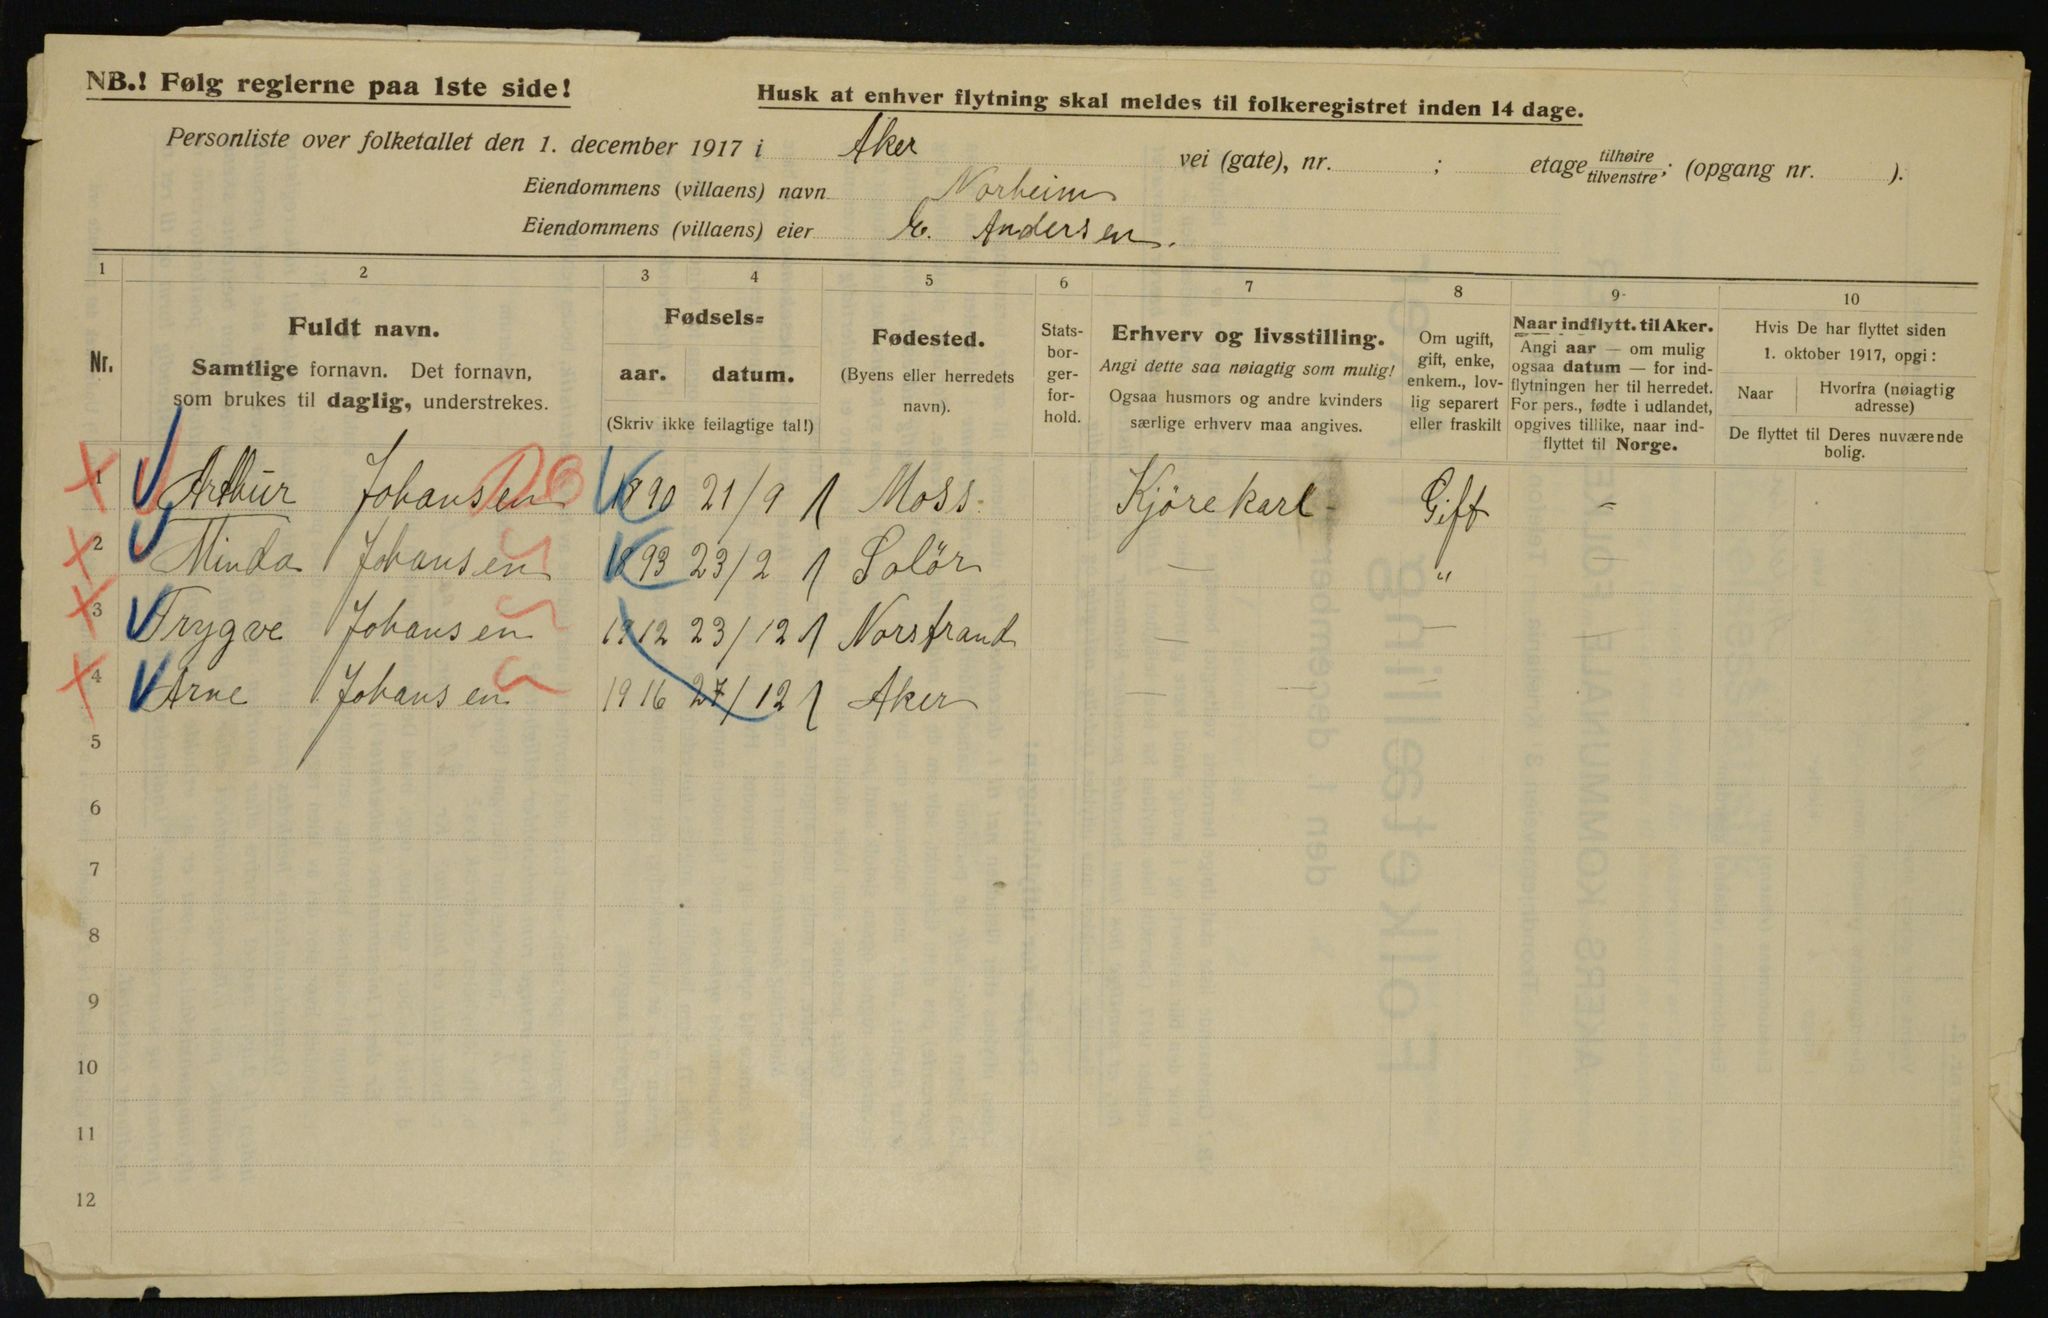 NB.! Følg reglerne paa 1ste side!
Husk at enhver flytning skal meldes til folkeregistret inden 14 dage.
Personliste over folketallet den 1. december 1917 i Aker vei (gate), nr. ; etage tilhøire tilvenstre; (opgang nr. ).
Eiendommens (villaens) navn Norheim
Eiendommens (villaens) eier E. Andersen.
1 2 3 4 5 6 7 8 9 10
Nr.
Fuldt navn.
Samtlige fornavn. Det fornavn,
som brukes til daglig, understrekes.
Fødsels=
aar. datum.
(Skriv ikke feilagtige tal!)
Fødested.
(Byens eller herredets
navn).
Stats-
bor-
ger-
for-
hold.
Erhverv og livsstilling.
Angi dette saa nøiagtig som mulig!
Ogsaa husmors og andre kvinders
særlige erhverv maa angives.
Om ugift,
gift, enke,
enkem., lov-
lig separert
eller fraskilt
Naar indflytt. til Aker.
Angi aar — om mulig
ogsaa datum — for ind-
flytningen her til herredet.
For pers., fødte i utlandet,
opgives tillike, naar ind-
flyttet til Norge.
Hvis De har flyttet siden
1. oktober 1917, opgi:
Naar
Hvorfra (nøiagtig
adresse)
De flyttet til Deres nuværende
bolig.
1 Arthur Johansen 1890 21/9 Moss. Kjörekarl - Gift -
2 Minda Johansen 1893 23/2 Solör — „ —
3 Trygve Johansen 1912 23/12 Norstrand — — —
4 Arne Johansen 1916 27/12 Aker — — —
5
6
7
8
9
10
11
12